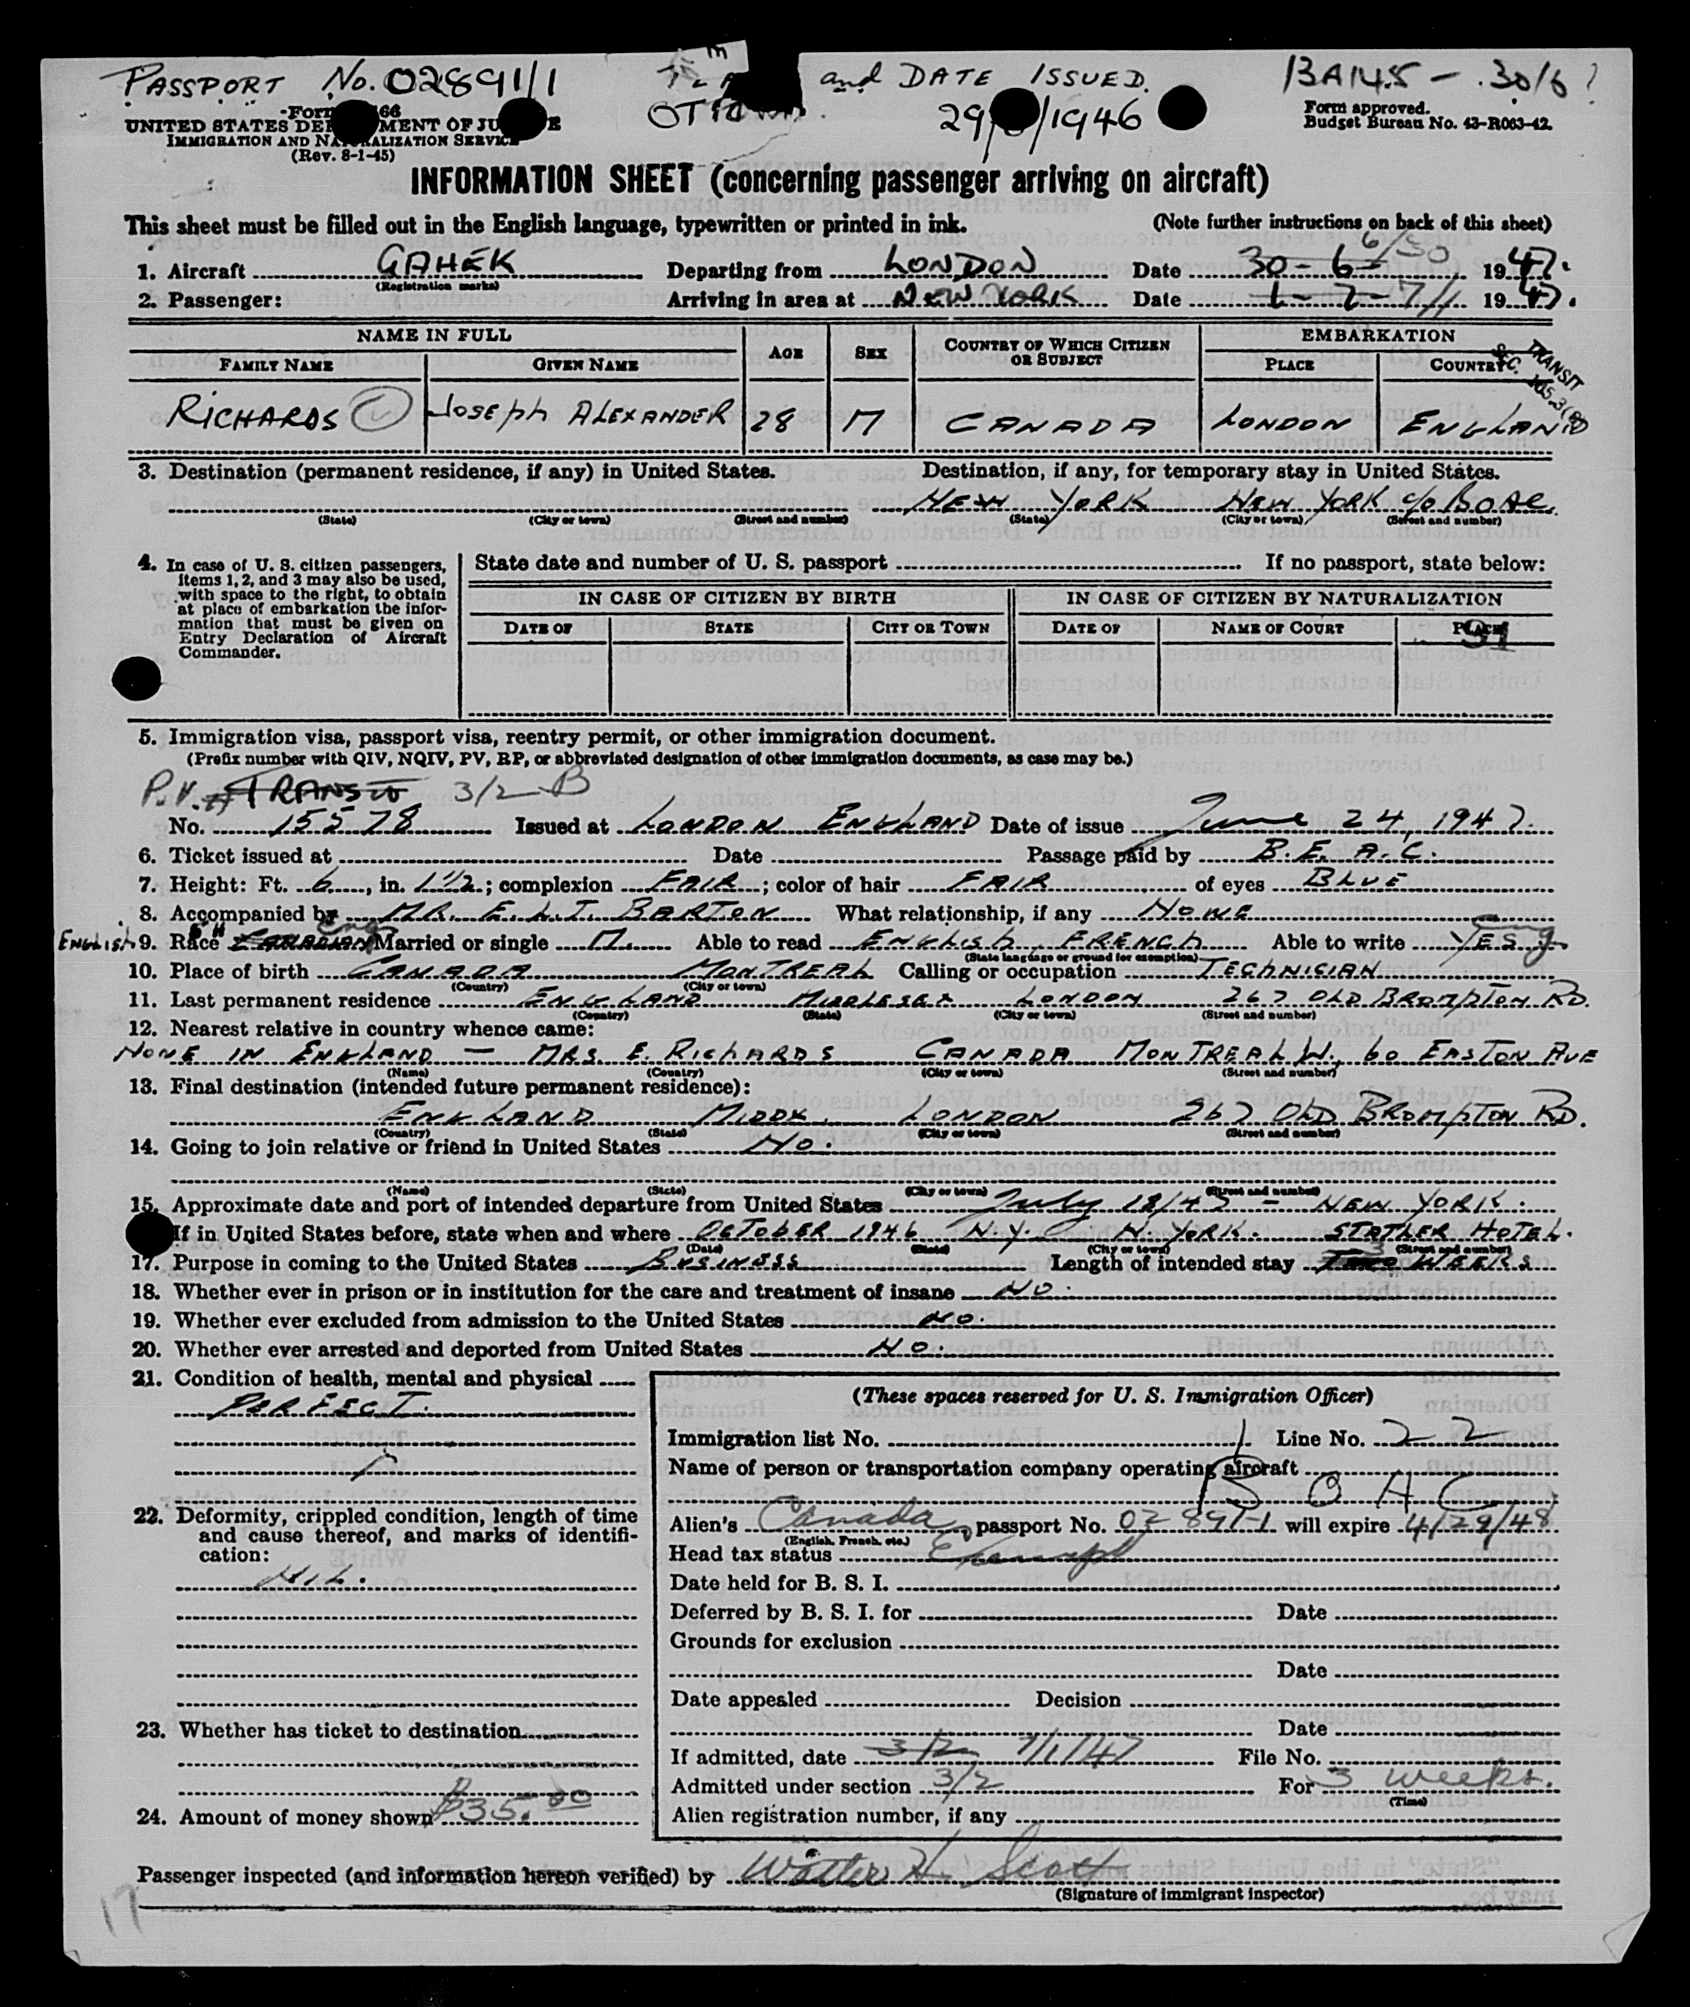 PASSPORT No. 02891/1 and DATE ISSUED. BA145 - 30/6
Form approved.
UNITED STATES OF
29/ /1946
Budget Bureau No. 43-R063-42.
IMMIGRATION AND NATURALIZATION SERVICE
(Rev. 8-1-45)
INFORMATION SHEET (concerning passenger arriving on aircraft)
This sheet must be filled out in the English language, typewritten or printed in ink. (Note further instructions on back of this sheet)
6/30
1. Aircraft GAHEK Departing from LONDON Date 30-6- 1947.
(Registration marks)
2. Passenger: Arriving in area at NEW YORK Date 1-7- 7/1 1947.
NAME IN FULL AGE SEX COUNTRY OF WHICH CITIZEN OR SUBJECT EMBARKATION
FAMILY NAME GIVEN NAME PLACE COUNTRY
TRANSIT
SEC.
RICHARDS JOSEPH ALEXANDER 28 M CANADA LONDON ENGLAND
3. Destination (permanent residence, if any) in United States. Destination, if any, for temporary stay in United States.
NEW YORK NEW YORK c/o BOAC.
(State) (City or town) (Street and number) (State) (City or town) (Street and number)
4. In case of U. S. citizen passengers, items 1, 2, and 3 may also be used, with space to the right, to obtain at place of embarkation the information that must be given on Entry Declaration of Aircraft Commander.
State date and number of U. S. passport If no passport, state below:
IN CASE OF CITIZEN BY BIRTH IN CASE OF CITIZEN BY NATURALIZATION
DATE OF STATE CITY OR TOWN DATE OF NAME OF COURT PLACE
91
5. Immigration visa, passport visa, reentry permit, or other immigration document.
(Prefix number with QIV, NQIV, PV, RP, or abbreviated designation of other immigration documents, as case may be.)
P.V. TRANSIT 3/2 B
No. 15578 Issued at LONDON ENGLAND Date of issue June 24, 1947.
6. Ticket issued at Date Passage paid by B.E.A.C.
7. Height: Ft. 6, in. 1 1/2; complexion FAIR; color of hair FAIR of eyes BLUE
8. Accompanied by MR. E.L.T. BARTON What relationship, if any NONE
ENGLISH 9. Race CANADIAN Eng Married or single M. Able to read ENGLISH, FRENCH Able to write YES
(State language or ground for exemption)
10. Place of birth CANADA MONTREAL Calling or occupation TECHNICIAN
(Country) (City or town)
11. Last permanent residence ENGLAND MIDDLESEX LONDON 267 OLD BROMPTON RD.
(Country) (State) (City or town) (Street and number)
12. Nearest relative in country whence came:
NONE IN ENGLAND - MRS E. RICHARDS CANADA MONTREAL W., 60 EASTON AVE
(Name) (Country) (City or town) (Street and number)
13. Final destination (intended future permanent residence):
ENGLAND MIDDX. LONDON 267 OLD BROMPTON RD.
(Country) (State) (City or town) (Street and number)
14. Going to join relative or friend in United States NO.
(Name) (State) (City or town) (Street and number)
15. Approximate date and port of intended departure from United States July 18/47 - NEW YORK.
If in United States before, state when and where OCTOBER 1946 N.Y. N. YORK. STATLER HOTEL.
(Date) (State) (City or town) (Street and number)
17. Purpose in coming to the United States BUSINESS Length of intended stay 3 WEEKS
18. Whether ever in prison or in institution for the care and treatment of insane NO.
19. Whether ever excluded from admission to the United States NO.
20. Whether ever arrested and deported from United States NO.
21. Condition of health, mental and physical
PERFECT.
22. Deformity, crippled condition, length of time and cause thereof, and marks of identification:
NIL.
23. Whether has ticket to destination
24. Amount of money shown $35.00
(These spaces reserved for U. S. Immigration Officer)
Immigration list No. 1 Line No. 22
Name of person or transportation company operating aircraft
BOAC
Alien's Canada passport No. 02891-1 will expire 4/29/48
(English, French, etc.)
Head tax status Exempt
Date held for B. S. I.
Deferred by B. S. I. for Date
Grounds for exclusion
Date
Date appealed Decision
Date
If admitted, date 3/2 7/1/47 File No.
Admitted under section 3/2 For 3 weeks.
(Time)
Alien registration number, if any
Passenger inspected (and information hereon verified) by Walter H. Scott
(Signature of immigrant inspector)
17